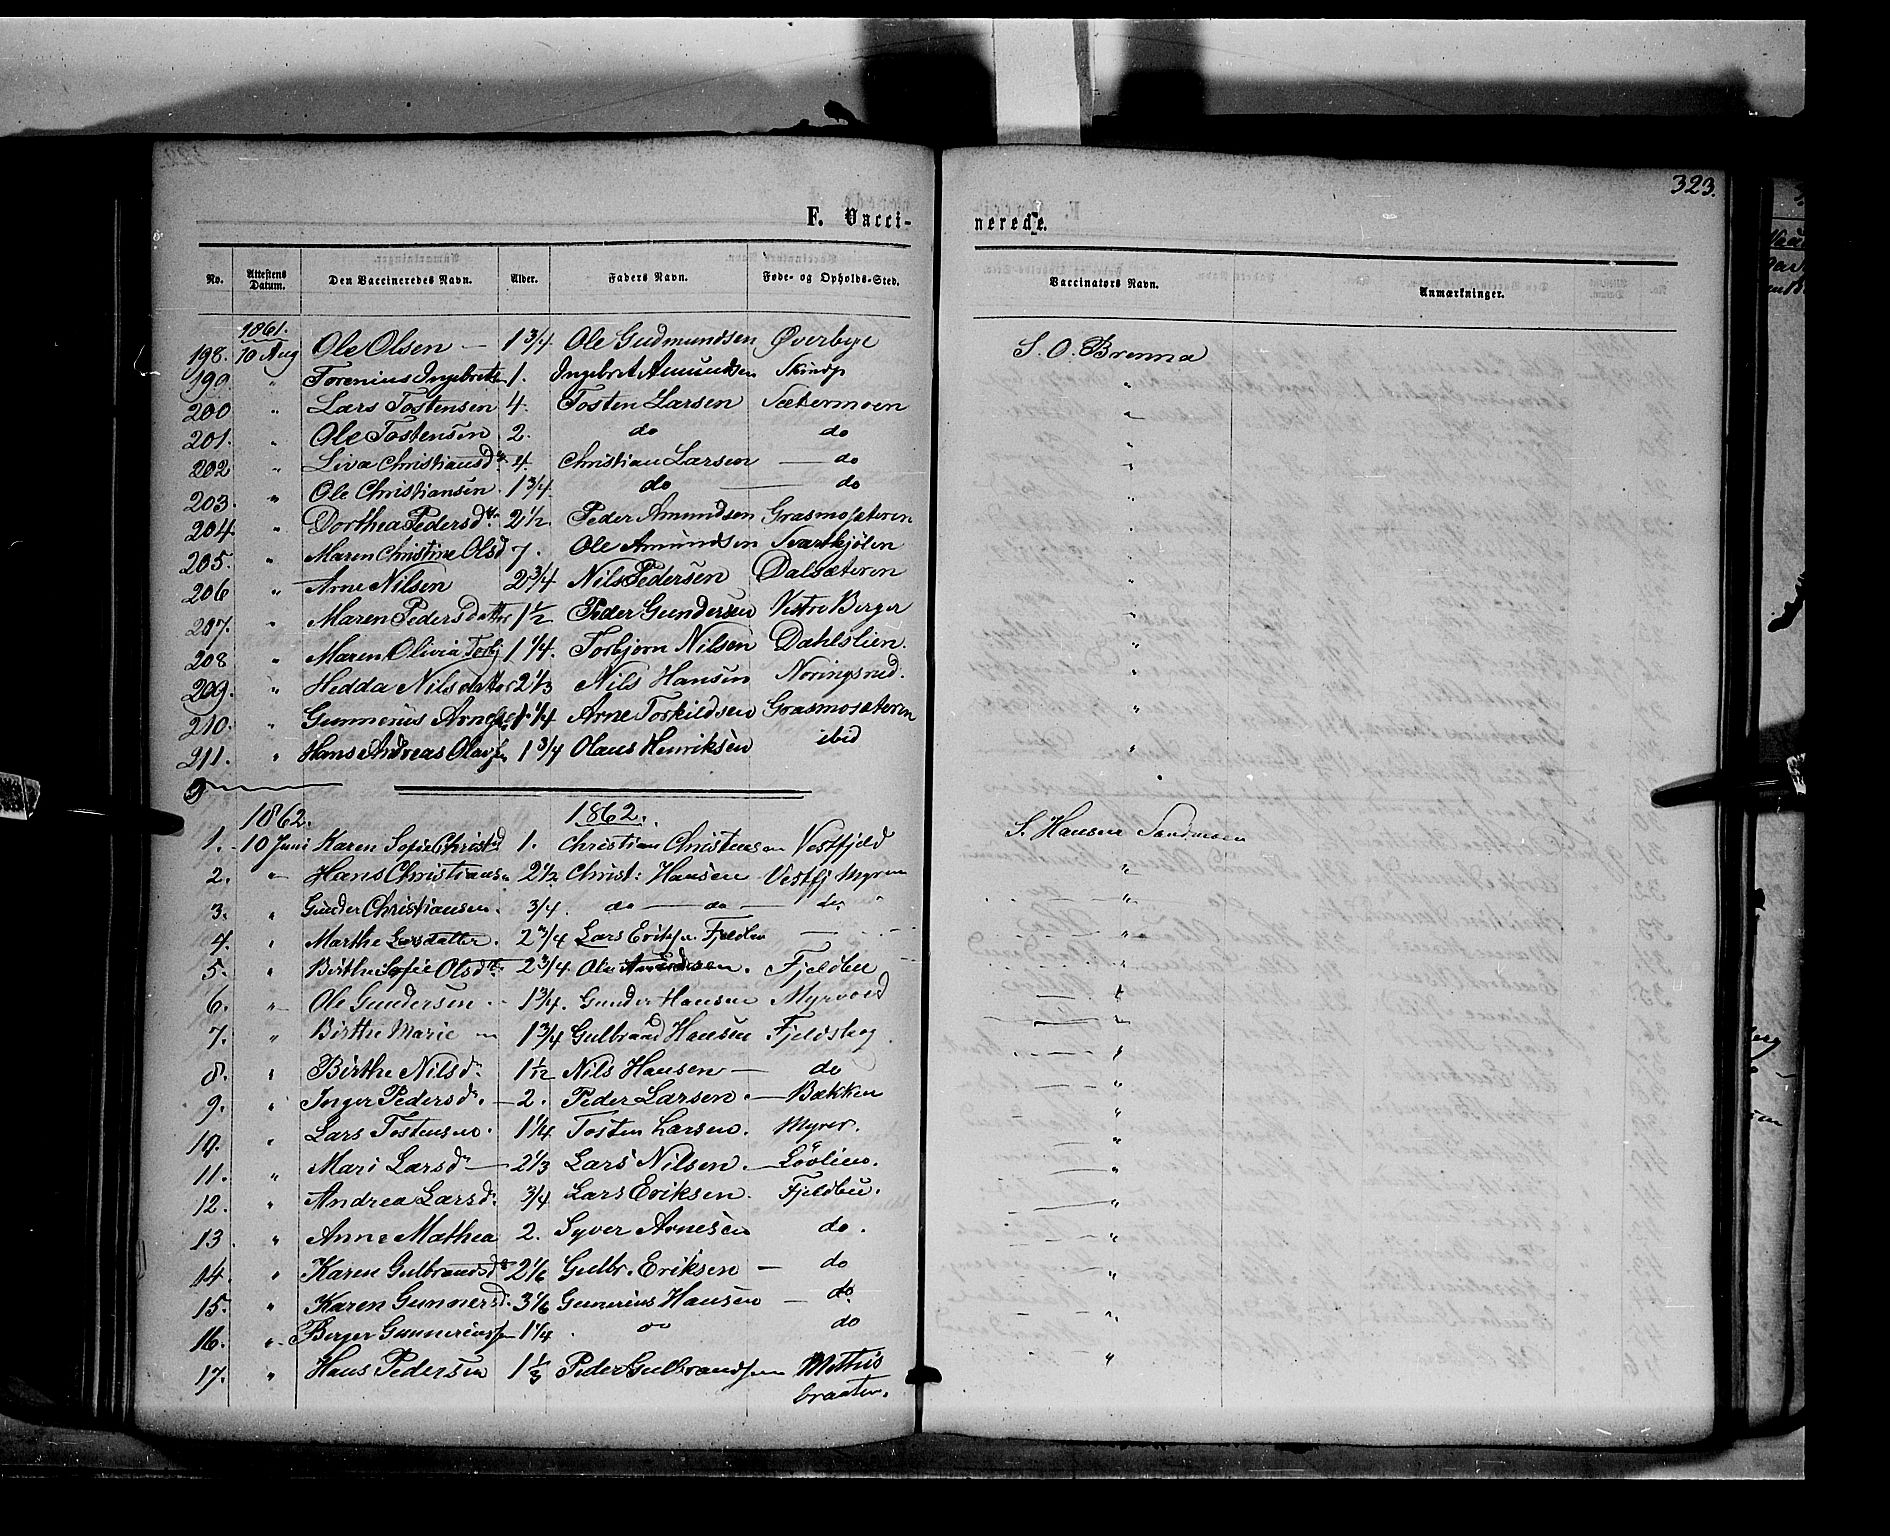 323.
F. Vacci-
nerede.
No. Attestens Datum. Den Vaccineredes Navn. Alder. Faders Navn. Føde- og Opholds-Sted. Vaccinators Navn. Anmærkninger.
1861.
198. 10 Aug Ole Olsen — 1 3/4 Ole Gudmundsen Øverbye S. O. Brenna
199 " Torenius Ingebrets 1. Ingebret Amundsen "
200 " Lars Tostensen 4. Tosten Larsen Sætermoen "
201. " Ole Tostensen 2. do do "
202 " Liva Christiansd 4. Christian Larsen — do "
203. " Ole Christiansen 1 3/4. do — do "
204. " Dorthea Pedersd 2 1/2 Peder Amundsen Grasmosæteren "
205. " Maren Christine Olsd 7. Ole Amundsen Svartkjølen "
206 " Arne Nilsen 2 3/4 Nils Pedersen Dalsæteren "
207. " Maren Pedersdatter 1 1/2 Peder Gundersen Vestre Berger "
208 " Maren Olivia Torbj 1 1/4. Torbjørn Nilsen Dahlslien. "
209. " Hedda Nilsdatter 2 1/3 Nils Hansen Noringsrud. "
210. " Gunnerius Arnesen 1 1/4 Arne Torkildsen Grasmosæteren "
211. " Hans Andreas Olavsen 1 3/4 Olaus Henriksen ibid "
1862. 1862.
1. 10 Juni Karen Sofie Christd 1. Christian Christensen Vestfjeld S. Hansen Sandnesen
2. " Hans Christians 2 1/2 Christ: Hansen Vestfj Myren "
3. " Gunder Christiansen. 3/4. do — do — do "
4. " Marthe Larsdatter. 2 3/4 Lars Eriksen Fjeldbu — "
5. " Birthe Sofie Olsd 2 3/4. Ole Amundsen. Fjeldbu "
6. " Ole Gundersen 1 3/4. Gunder Hansen Myrvold "
7. " Birthe Marie 1 3/4 Gulbrand Hansen "
8. " Birthe Nilsd. 1 1/12 Nils Hansen — do "
9. " Inger Pedersd. — 2. Peder Larsen. — Bækken "
10. " Lars Tostensen. 1 1/4 Tosten Larsen. Myrer. "
11. " Mari Larsd — 2 1/3 Lars Nilsen. — Løvlien. "
12. " Andrea Larsd. 3/4 Lars Eriksen. Fjeldbu. "
13. " Anne Mathea 2. Syver Arnesen do. "
14. " Karen Gulbrandsd 2 1/6 Gulbr. Eriksen — do "
15. " Karen Gunnersd. 3 1/6 Gunerius Hansen — do "
16. " Berger Gunneriussen 1 1/4. do do "
17. " Hans Pedersen 1 1/3 Peder Gulbrandsen Mathis "
braaten.